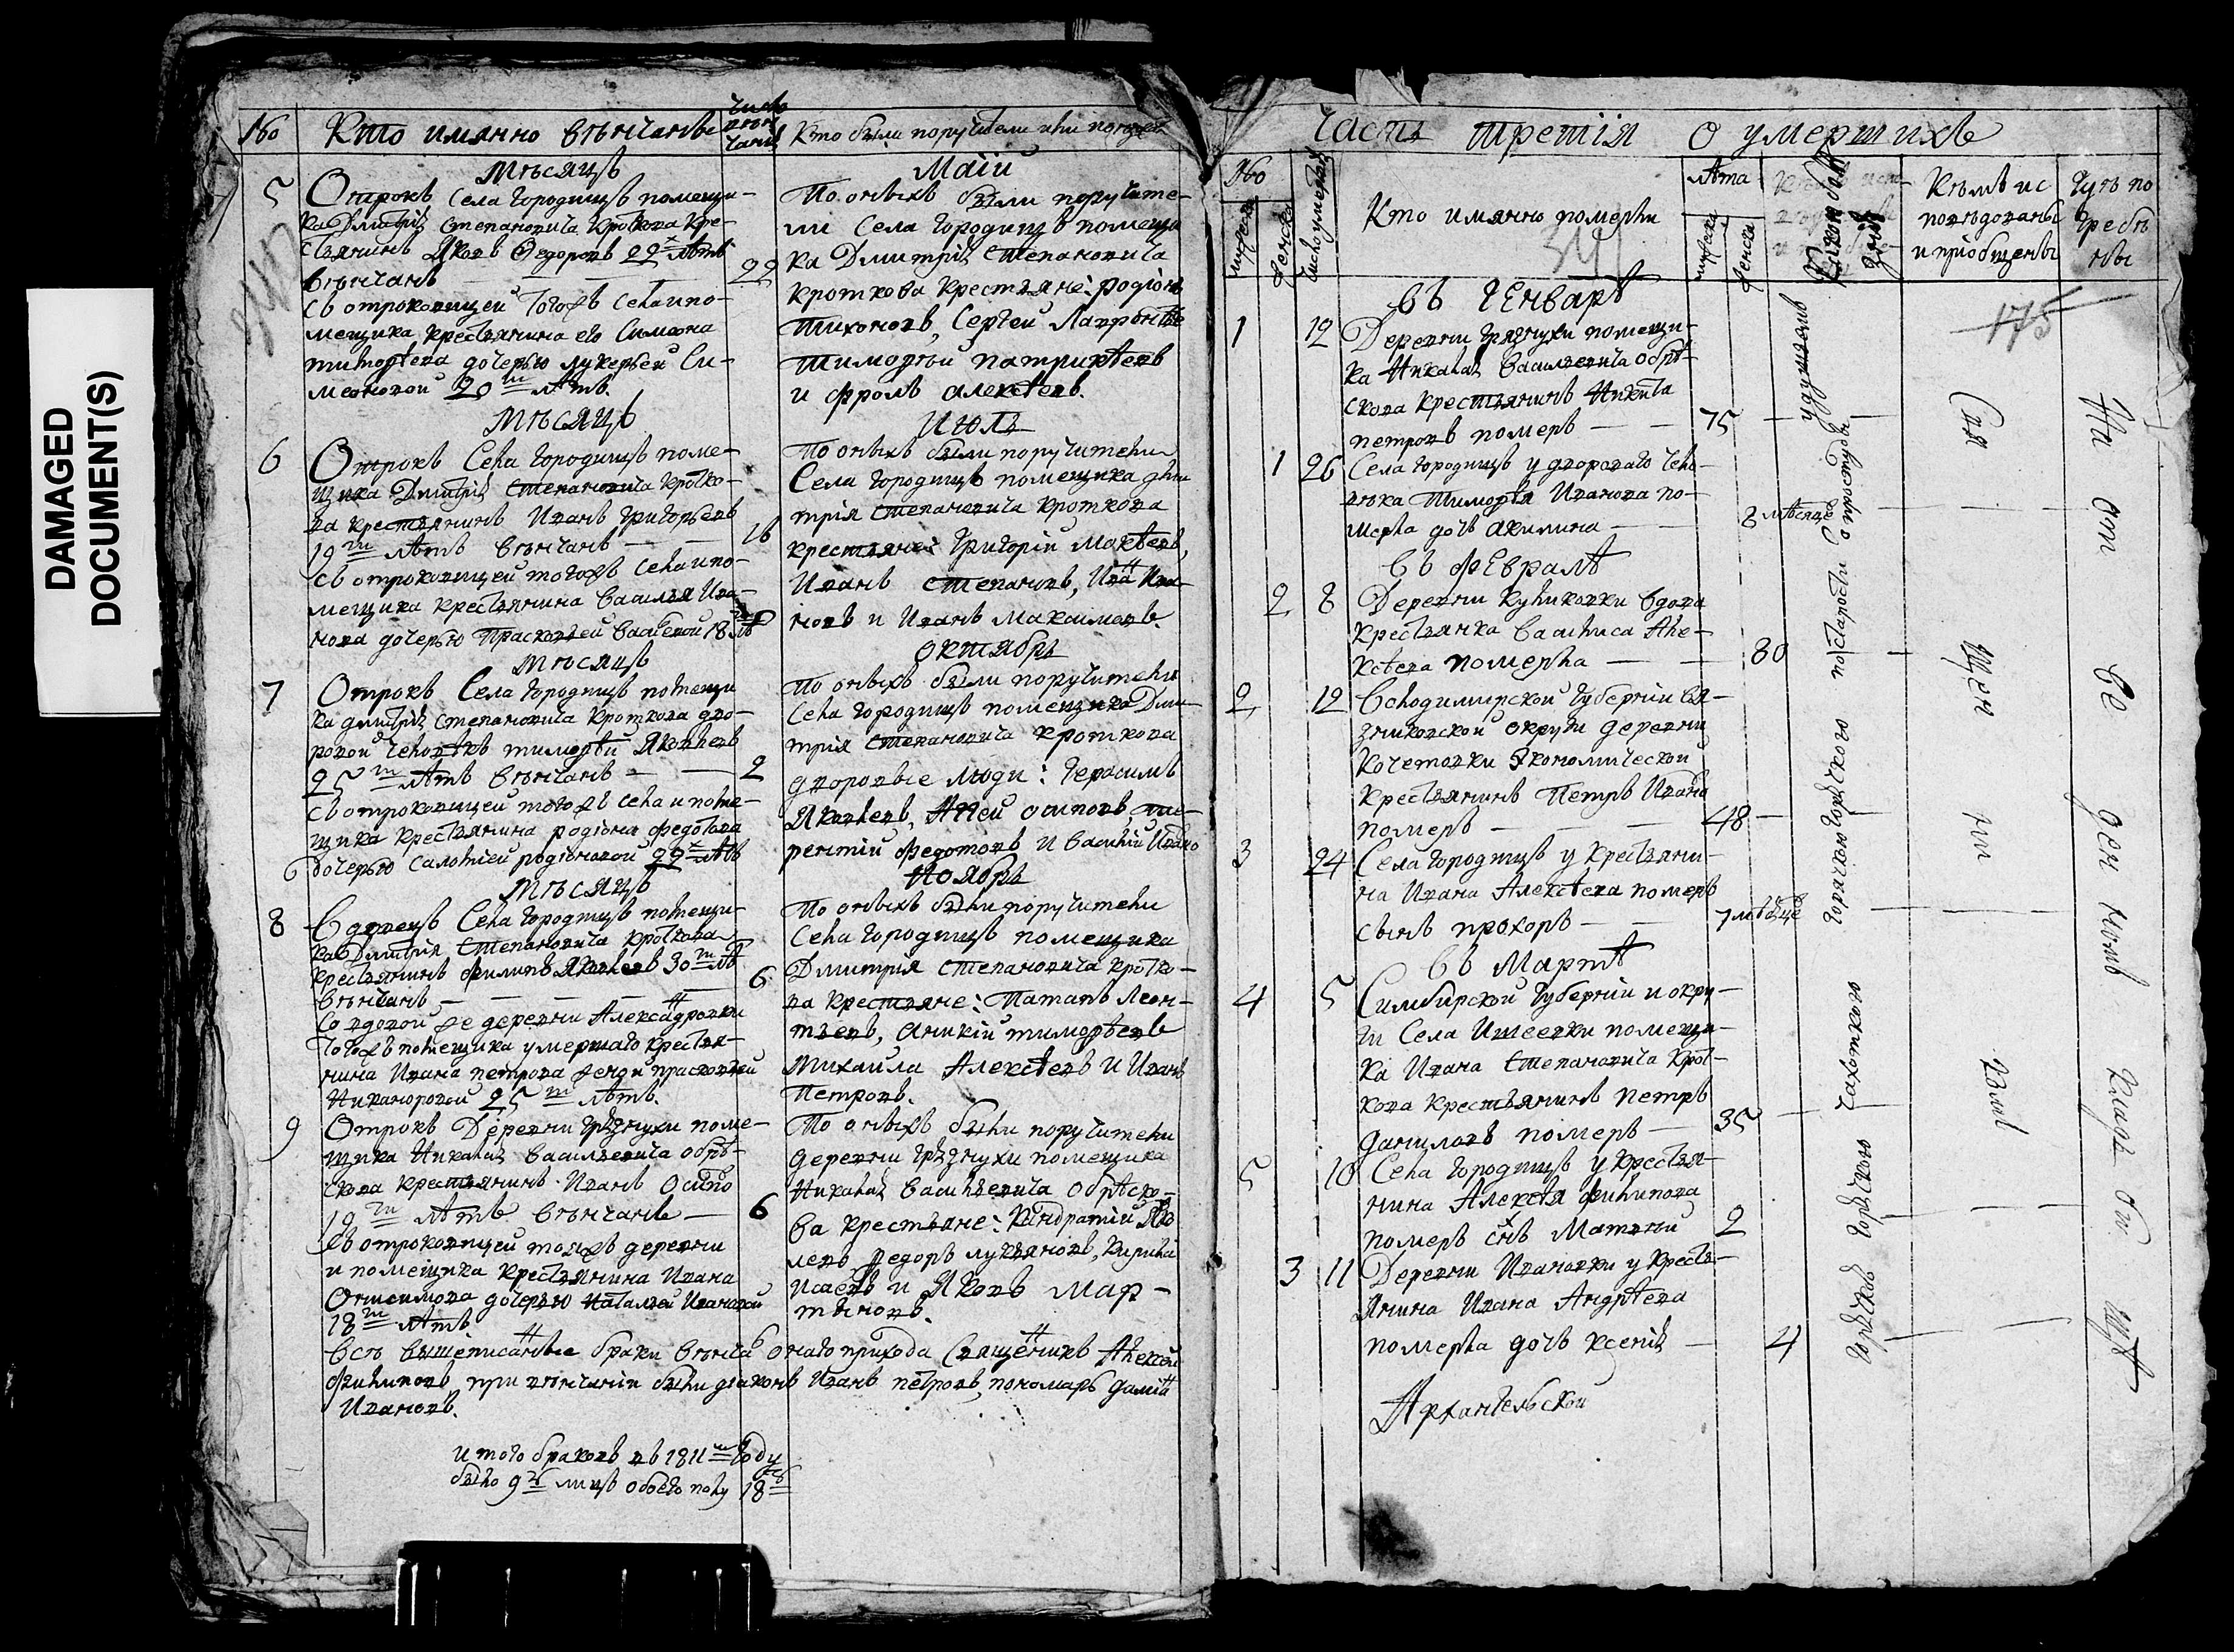 DAMAGED
DOCUMENT(S)
№ Кто имянно венчанъ
Число венчанiя
Кто были поручители или поезжане
Мѣсяцъ Маiй
5 Отрокъ Села Городищъ помещи-
ка Дмитрiя Степановича Кроткова Кре-
стьянинъ Яковъ Федоровъ 22х лѣтъ
венчанъ — 22
съ отроковицей тогожъ села и по-
мещика крестьянина его Симеона
тимофеева дочерью лукерьей Си-
меоновой 20ти лѣтъ.
По оныхъ были поручите-
ли Села Городищъ помещи
ка Дмитрiя Степановича
Кроткова крестьяне: родiонъ
Тихоновъ, Сергей Лаврентье
Тимофей патрикѣевъ
и фролъ алексѣевъ.
Мѣсяцъ Июль
6 Отрокъ Села Городищъ поме-
щика Дмитрiя Степановича Кротко-
ва крестьянинъ Иванъ Григорьевъ
19ти лѣтъ венчанъ — 16
съ отроковицей тогожъ села и по-
мещика крестьянина Василья Ива-
нова дочерью Прасковьей Васильевой 18
По оныхъ были поручители
Села Городищъ помещика Дми
трiя Степановича Кроткова
крестьяне: Григорiй Макѣевъ,
Иванъ Степановъ, Ива Ива-
новъ и Иванъ Максимовъ.
Мѣсяцъ Октябрь
7 Отрокъ Села Городищъ помещи
ка Дмитрiя Степановича Кроткова дво-
ровой человѣкъ тимофей Яковлевъ
25ти лѣтъ венчанъ — 2
съ отроковицей тогожъ села и поме-
щика крестьянина родiона федотова
дочерью Саломiей родiоновой 22х лѣтъ
По оныхъ были поручители
Села Городищъ помещика Дми-
трiя Степановича Кроткова
дворовые люди: Герасимъ
Яковлевъ, Агѣй осиповъ, те-
рентий Федотовъ и Василiй Ивано
Мѣсяцъ Ноябрь
8 Вдовецъ Села Городищъ помещи-
ка Дмитрiя Степановича Кроткова
крестьянинъ филипъ Яковлевъ 30ти лѣ
венчанъ — 6
Со вдовой же деревни Александровки
тогожъ помещика умершаго крестья-
нина Ивана петрова женой прасковьей
Никаноровой 25ти лѣтъ.
По оныхъ были поручители
Села Городищъ помещика
Дмитрiя Степановича Кротко-
ва крестьяне: Патапъ Леон-
тьевъ, Аникiй тимофѣевъ
Михайла Алексѣевъ и Иванъ
Петровъ.
9 Отрокъ Деревни Грязнухи поме-
щика Николая Васильевича обрѣ-
скова крестьянинъ Иванъ Осипо
19ти лѣтъ венчанъ — 6
съ отроковицей тояжъ деревни
и помещика крестьянина Ивана
Онисимова дочерью Натальей Ивановой
18ти лѣтъ
По оныхъ были поручители
деревни Грязнухи помещика
Николая Васильевича Обрѣско-
ва крестьяне: Кондратiй
Федоръ лукьяновъ, Кирила
Исаевъ и Яковъ Мар-
тыновъ.
Всѣ вышеписанные браки венча онаго прихода Священникъ Алексей
Филиповъ, при венчанiи были дiаконъ Иванъ петровъ, пономарь Данiи
Ивановъ.
И того браковъ въ 1811м году
было 9 лицъ обоего полу 18
Часть третiя о умершихъ
№
мужеска
женска
Число умершихъ
Кто имянно померли
Лѣта
мужеска
женска
Кѣмъ ис
поведованы
и прiобщены
Гдѣ по
гребе
ны
341
175
Въ Генварѣ
1 12 Деревни Грязнухи помещи-
ка Николая Васильевича обрѣ-
скова крестьянинъ Никита
петровъ померъ — 75 — удушьемъ
1 26 Села Городищъ у двороваго чело-
вѣка Тимофѣя Иванова по-
мерла дочь акилина — 8 мѣсяцев
Въ Февралѣ
2 8 Деревни Куликовки вдова
крестьянка Василиса Але-
ксѣева померла — 80 по старости
2 12 Володимирской Губернiи Вя-
зниковской округи деревни
Кочетовки Экономической
крестьянинъ Петръ Ивано
померъ — 48 — горячкою
3 24 Села Городищъ у крестьяни-
на Ивана Алексѣева померъ
сынъ прохоръ — 7 мѣсяце горячкою
Въ Мартѣ
4 5 Симбирской Губернiи и окру-
ги Села Ишеевки помещи-
ка Ивана Степановича Крот-
кова крестьянинъ Петръ
даниловъ померъ — 35 — чахоткою
5 10 Села Городищъ у крестья-
нина Алексѣя филипова
померъ снъ Матвей 2 горячкою
3 11 Деревни Ивановки у кресть-
янина Ивана Андрѣева
померла дочь ксенiя — 4 горячкою
Свя
щен
ни
комъ
На
от
ве
ден
номъ
кладъ
би
щѣ
Архангельской